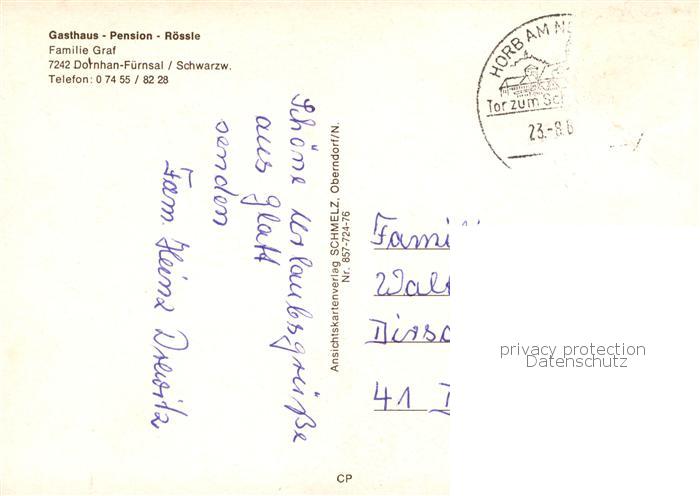 Gasthaus - Pension - Rössle
Familie Graf
7242 Dornhan-Fürnsal / Schwarzw.
Telefon: 0 74 55 / 82 28
HORB AM N
Tor zum Sc
23.-8.8
Schöne Urlaubsgrüße
aus Glatt
senden
Fam. Heinz Drewitz
Ansichtskartenverlag SCHMELZ, Oberndorf/N.
Nr. 857-724-76
Famili
Walt
Dirsc
41 D
privacy protection
Datenschutz
CP